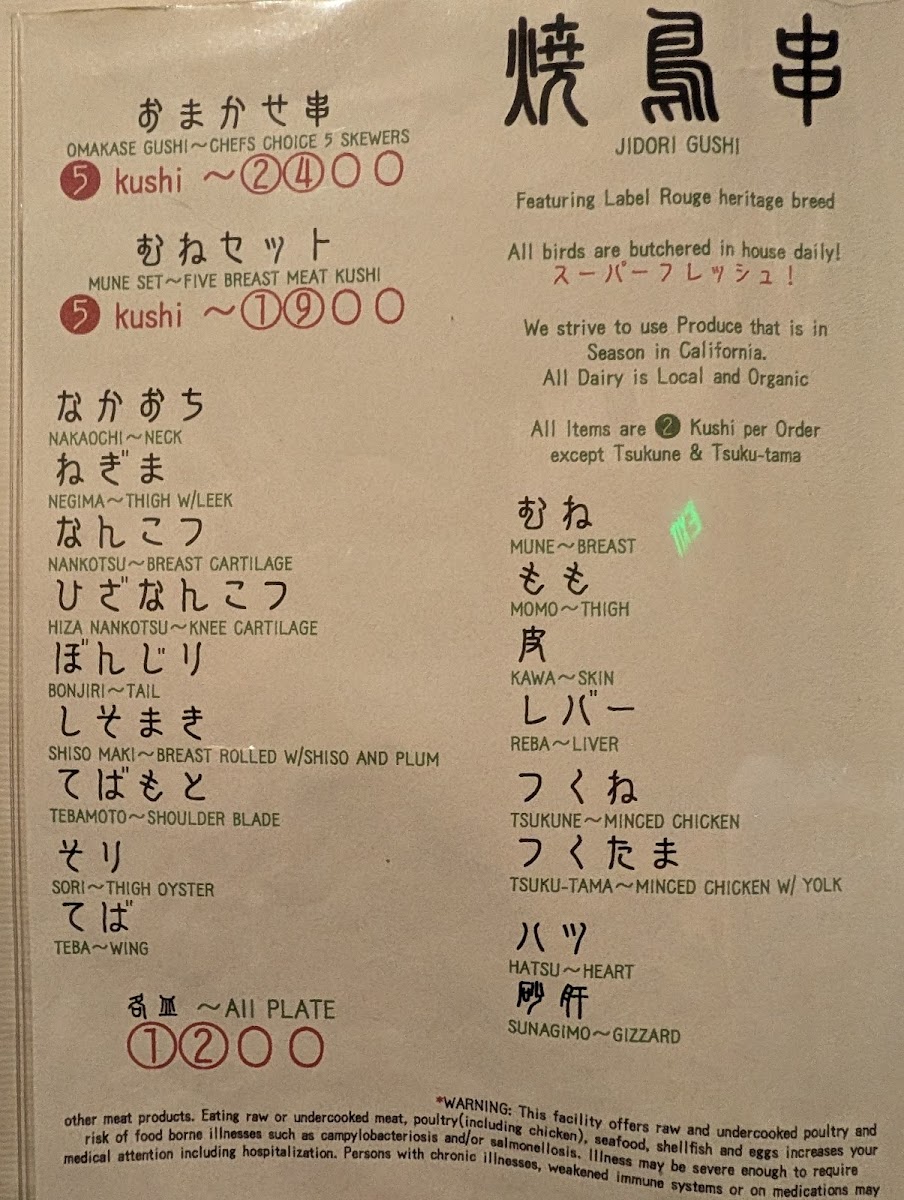 焼鳥串
JIDORI GUSHI
Featuring Label Rouge heritage breed
All birds are butchered in house daily!
スーパーフレッシュ！
We strive to use Produce that is in
Season in California.
All Dairy is Local and Organic
All Items are ❷ Kushi per Order
except Tsukune & Tsuku-tama
おまかせ串
OMAKASE GUSHI〜CHEFS CHOICE 5 SKEWERS
❺ kushi 〜②④〇〇
むねセット
MUNE SET〜FIVE BREAST MEAT KUSHI
❺ kushi 〜①⑨〇〇
なかおち
NAKAOCHI〜NECK
ねぎま
NEGIMA〜THIGH W/LEEK
なんこつ
NANKOTSU〜BREAST CARTILAGE
ひざなんこつ
HIZA NANKOTSU〜KNEE CARTILAGE
ぼんじり
BONJIRI〜TAIL
しそまき
SHISO MAKI〜BREAST ROLLED W/SHISO AND PLUM
てばもと
TEBAMOTO〜SHOULDER BLADE
そり
SORI〜THIGH OYSTER
てば
TEBA〜WING
むね
MUNE〜BREAST
もも
MOMO〜THIGH
皮
KAWA〜SKIN
レバー
REBA〜LIVER
つくね
TSUKUNE〜MINCED CHICKEN
つくたま
TSUKU-TAMA〜MINCED CHICKEN W/ YOLK
ハツ
HATSU〜HEART
砂肝
SUNAGIMO〜GIZZARD
各皿 〜All PLATE
①②〇〇
*WARNING: This facility offers raw and undercooked poultry and
other meat products. Eating raw or undercooked meat, poultry(including chicken), seafood, shellfish and eggs increases your
risk of food borne illnesses such as campylobacteriosis and/or salmonellosis. Illness may be severe enough to require
medical attention including hospitalization. Persons with chronic illnesses, weakened immune systems or on medications may